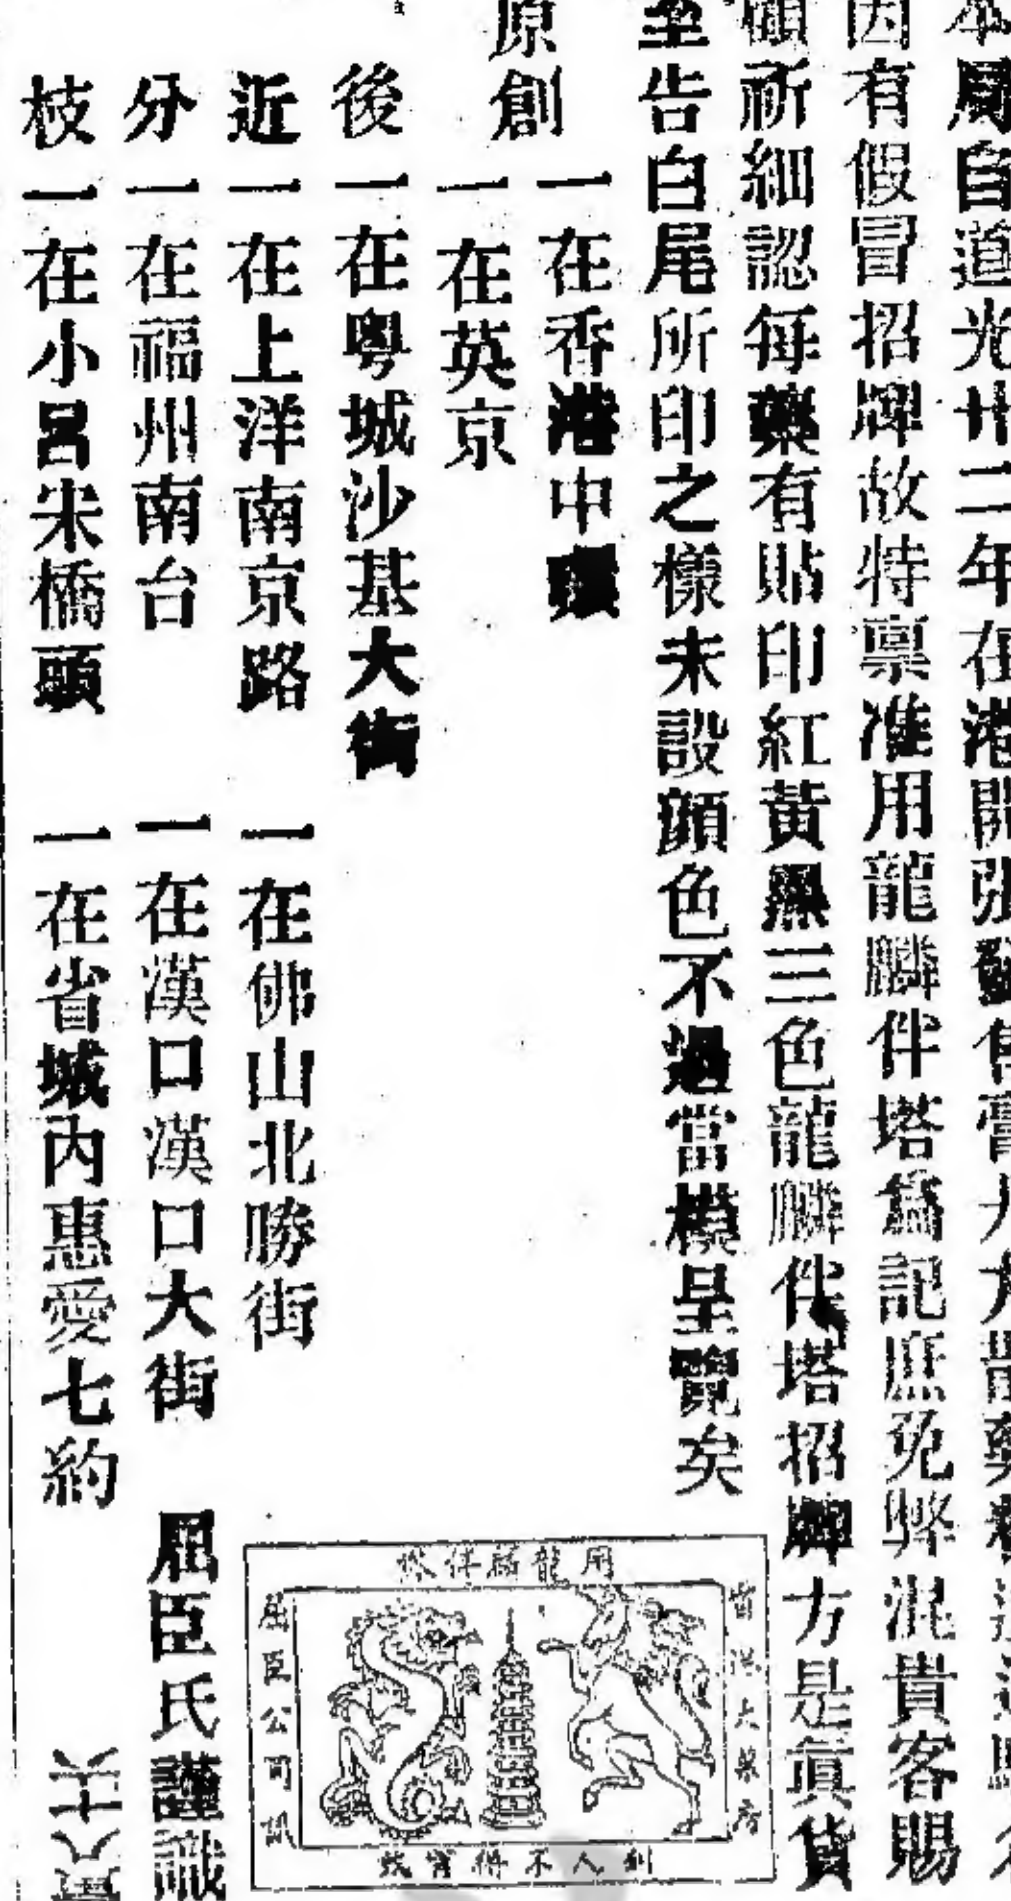 本局自道光廿二年在港開張發售膏丹
因有假冒招牌故特禀准用龍麟伴塔爲記庶免弊混貴客賜
顧祈細認每藥有貼印紅黃黑三色龍麟伴塔招牌方是眞貨
至告白尾所印之樣未設顔色不過當模呈覽矣
原創
一在香港中環
一在英京
後一在粤城沙基大街
近一在上洋南京路 一在佛山北勝街
分一在福州南台 一在漢口漢口大街 屈臣氏謹識
枝一在小呂宋橋頭 一在省城內惠愛七約
用龍麟伴塔
香港大藥房
屈臣公司
別人不得冒效